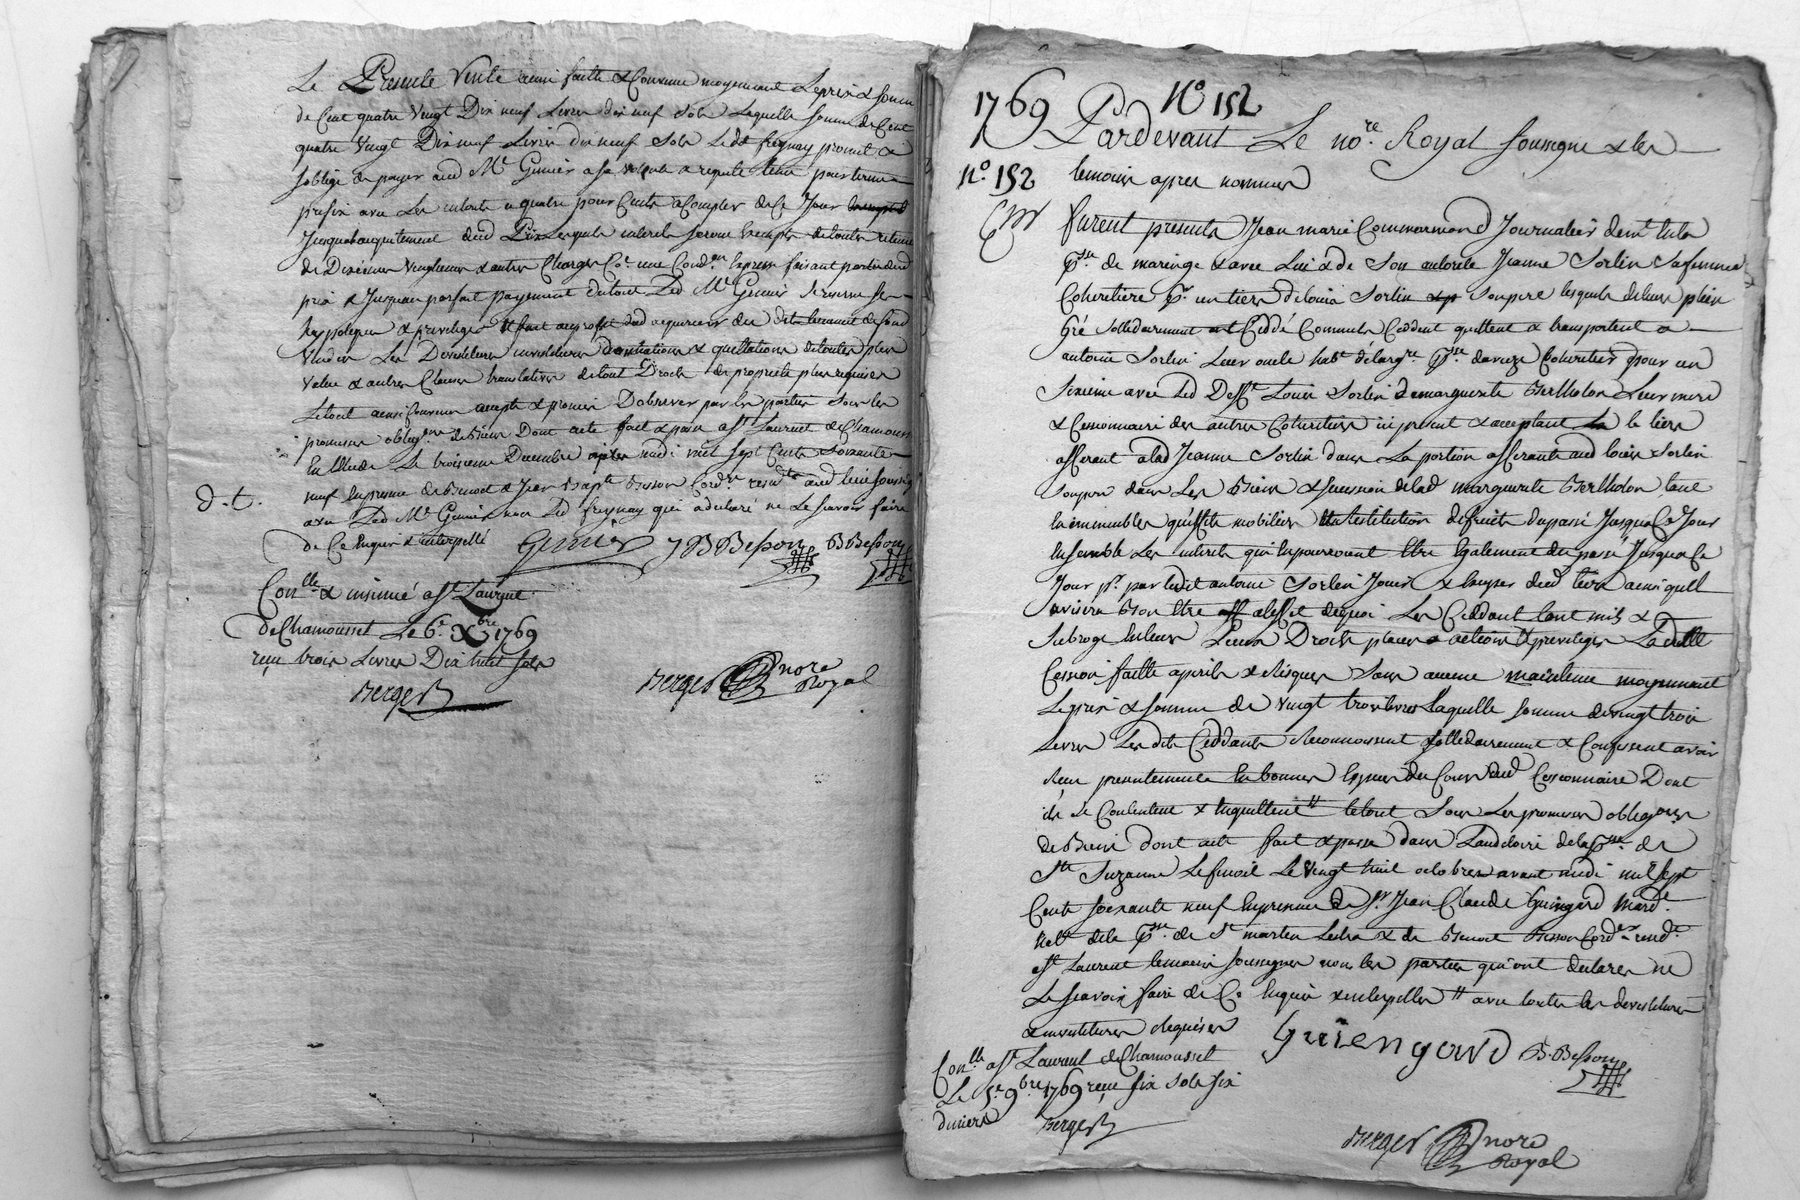 La Presente Vente ainsi faitte & Convenue moyennant Le prix & somme
de Cent quatre Vingt Dix neuf Livres dix neuf Sols Laquelle somme de Cent
quatre Vingt Dix neuf Livres dix neuf Sols Ledt freynay promet &
soblige de payer aud Mr Gunier a sa volonté & requete
prefix avec Les interets a quatre pour Cents a Compter de Ce Jour
Jusqua acquitement dud Prix Lesquels interets seront Exempts de toutte retenue
de Dixiemes Vingtiemes & autres Charges Ce une Condon Expresse faisant partie dud
prix & Jusquau parfait payement du tout Led Mr Gunier se reserve Ses
hyppoteques & privileges
Vendus Les Devestitures investitures & de toutes plus
Value & autres Clauses translatives de tout Droits de propriete plus requises
Le tout ainsi Convenu accepté & promis D'observer par les parties Sous les
promesses obligons de Biens Dont acte fait & passé a St Laurent de Chamousset
En Etude Le troisieme Decembre après midi mil Sept Cents Soixante
neuf En presence de Benoit & Jean Bapte Besson Cordrs residts aud lieu soussignes
d. t.
avec Led Mr Gunier non Led freynay qui a declaré ne Le Scavoir faire
de Ce Enquis & interpellé Gunier J B Besson B. Besson
Conlle & insinué a St Laurent
de Chamousset Le 6e Xbre 1769
reçu trois Livres Dix huit Sols
Berger Berger nore
Royal
1769 No 152
Pardevant Le nore Royal soussigné & les
No. 152 temoins apres nommés
Furent presents Jean marie Commarmond Journalier demt en la
psse de maringe & avec Lui & de Son autorité Jeanne Sorlin Sa femme
Coheritiere pr un tiers de Louis Sorlin Son pere lesquels de leur plein
Gré Sollidairement ont Ceddé Comme ils Ceddent quittent & transportent a
antoine Sorlin Leur oncle habt psse Coheritier pour un
Sixieme avec Led Deft Louis Sorlin de marguerite Bertholon Leur mere
& Cessionnaire des autres Coheritiers ici present & acceptant le tiers
afferant a lad Jeanne Sorlin dans La portion afferante aud Louis Sorlin
Son pere dans Les Biens & succession de lad marguerite Bertholon tant
en immeubles qu'effets mobiliers restitution de fruits du passé Jusqua Ce Jour
Ensemble Les interets qui En pourroient Etre Egalement du passé Jusqua Ce
Jour pr par ledit antoine Sorlin Jouir & En user dud tiers ainsi quil
avisera Bon Etre a l'effet dequoi Les Ceddants L'ont mis &
Subrogé En leurs Lieux Droits places actions & privileges La ditte
Cession faitte a perils & Risques Sans aucune maintenue moyennant
Le prix & somme de Vingt trois Livres Laquelle somme de vingt trois
Livres Les dits Ceddants Reconnoissent Sollidairement & Confessent avoir
Reçu presentement En bonnes Especes du Cours dud Cessionnaire Dont
ils Se Contentent & En quittent le tout Sous Les promesses obligons
de Biens dont acte fait & passé dans L'auditoire de la psse de
Ste Suzanne Le Vingt huit octobre avant midi mil Sept
Cents soixante neuf En presence de Sr Jean Claude Guingard Mard
habt de la psse de St martin Lestra & de Benoit Besson Cordr residt
a St Laurent temoins soussignes non les parties qui ont declarés ne
Le scavoir faire de Ce Enquis & interpellés avec toutes les devestitures
& investitures Requises Guiengard B. Besson
Conlle a St Laurent de Chamousset
Le 5e 9bre 1769 reçu Six Sols Six
deniers Berger Berger nore
Royal